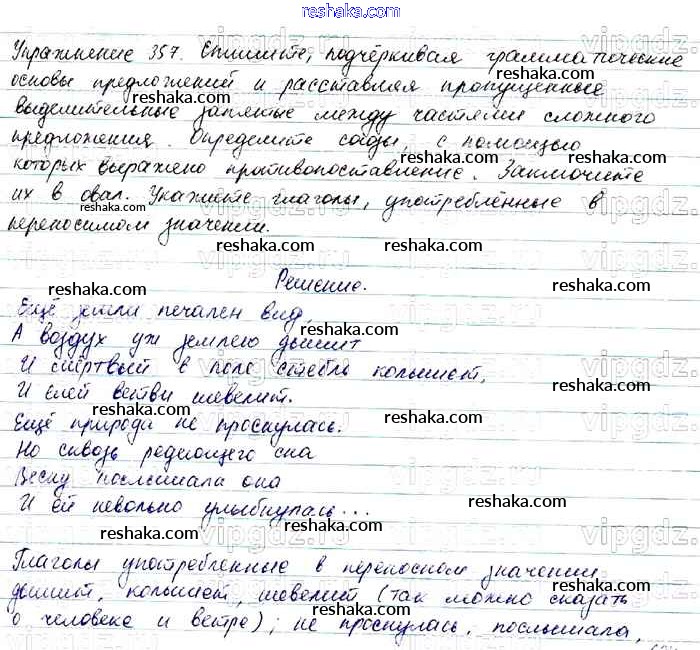 reshaka.com
Упражнение 357. Спишите, подчёркивая грамматические
основы предложений и расставляя пропущенные
выделительные запятые между частями сложного
предложения. Определите союзы, с помощью
которых выражено противопоставление. Заключите
их в овал. Укажите глаголы, употреблённые в
переносном значении.
Решение.
Ещё земли печален вид,
А воздух уж землею дышит
И мёртвый в поле стебль колышет,
И елей ветви шевелит.
Ещё природа не проснулась.
Но сквозь редеющего сна
Весну послышала она
И ей невольно улыбнулась...
Глаголы употребленные в переносном значении
дышит, колышет, шевелит (так можно сказать
о человеке и ветре); не проснулась, послышала,